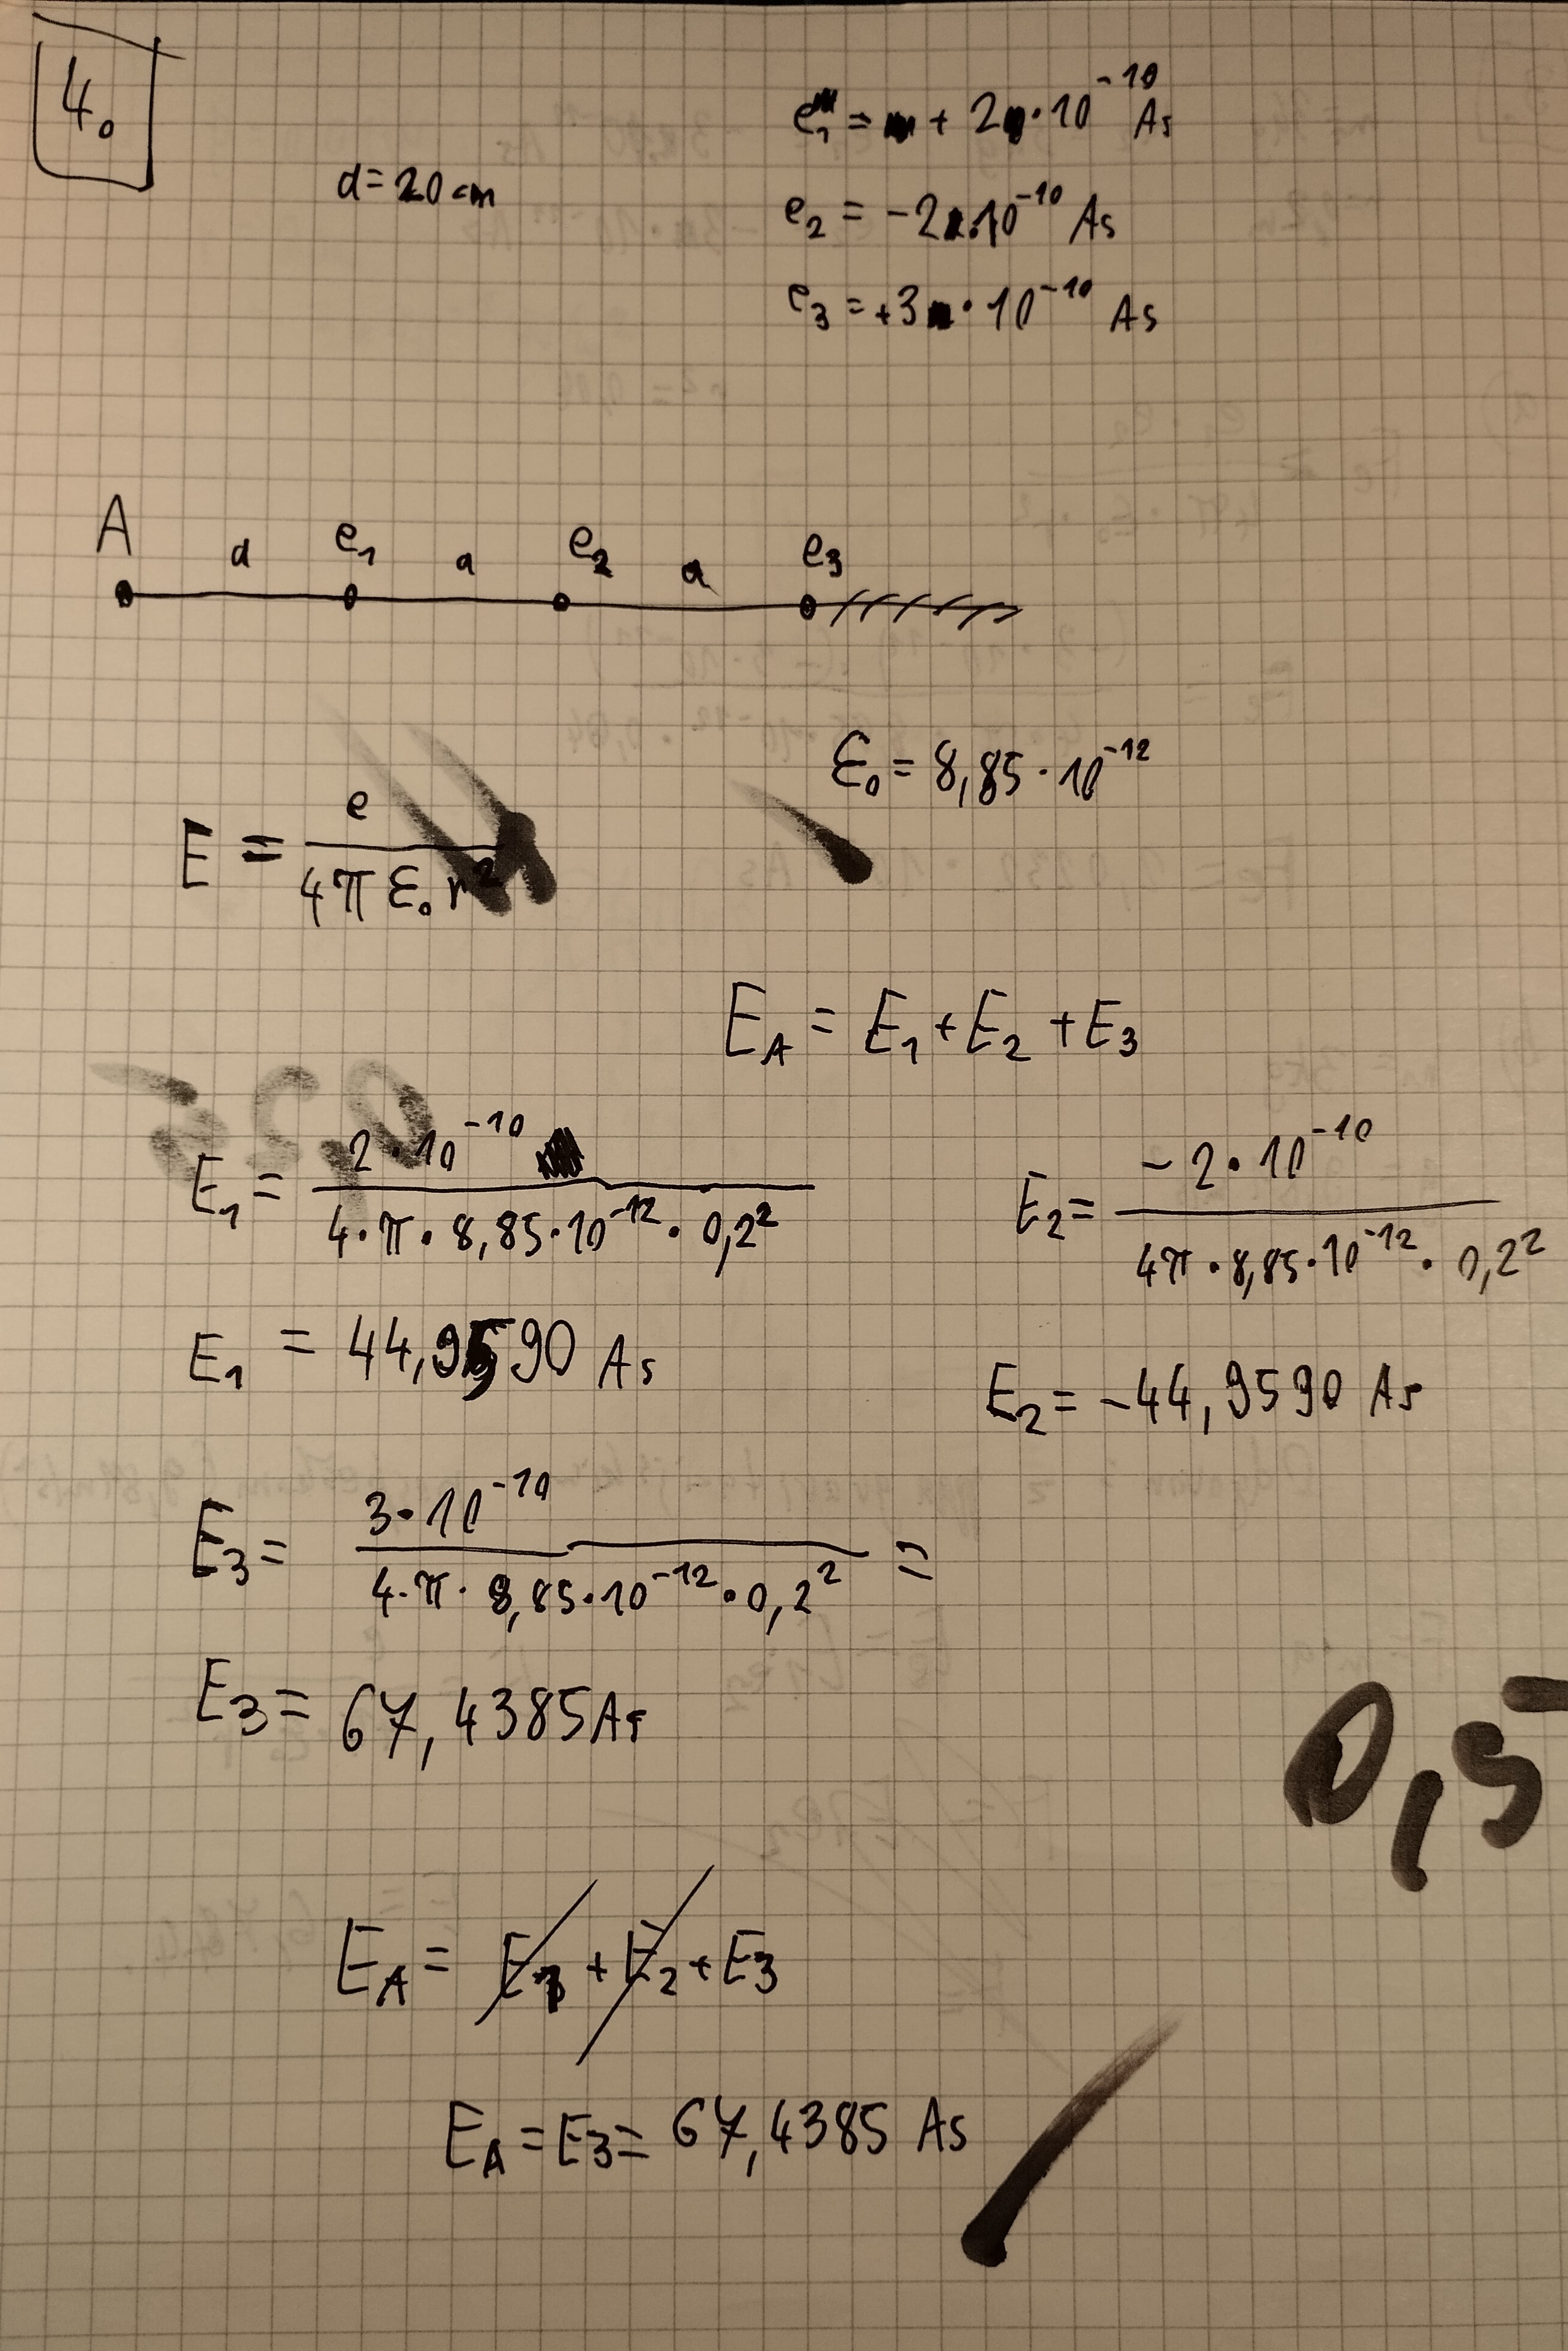 4.
e₁ = + 2·10⁻¹⁰ As
d = 20 cm
e₂ = -2·10⁻¹⁰ As
e₃ = +3·10⁻¹⁰ As
A d e₁ a e₂ a e₃
ε₀ = 8,85·10⁻¹²
E = e / 4π ε₀ r²
E_A = E₁ + E₂ + E₃
E₁ = 2·10⁻¹⁰ / 4·π·8,85·10⁻¹²·0,2²
E₂ = -2·10⁻¹⁰ / 4π·8,85·10⁻¹²·0,2²
E₁ = 44,9590 As
E₂ = -44,9590 As
E₃ = 3·10⁻¹⁰ / 4·π·8,85·10⁻¹²·0,2² =
E₃ = 67,4385 As
0,5
E_A = E₁ + E₂ + E₃
E_A = E₃ = 67,4385 As